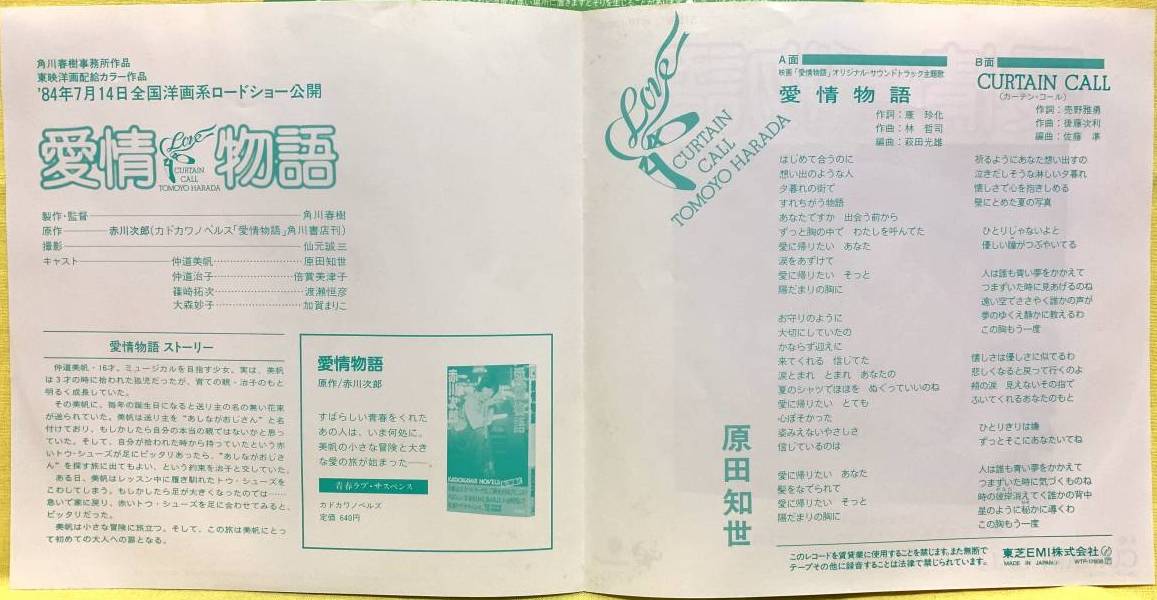 角川春樹事務所作品
東映洋画配給カラー作品
'84年7月14日全国洋画系ロードショー公開
愛情物語
Love
CURTAIN
CALL
TOMOYO HARADA
製作・監督 角川春樹
原作 赤川次郎(カドカワノベルス「愛情物語」角川書店刊)
撮影 仙元誠三
キャスト 仲道美帆 原田知世
仲道治子 倍賞美津子
篠崎拓次 渡瀬恒彦
大森妙子 加賀まりこ
愛情物語 ストーリー
仲道美帆・16才。ミュージカルを目指す少女。実は、美帆
は3才の時に拾われた孤児だったが、育ての親・治子のもと
明るく成長していた。
その美帆に、毎年の誕生日になると送り主の名の無い花束
が送られていた。美帆は送り主を“あしながおじさん”と名
付けており、もしかしたら自分の本当の親ではないかと思っ
ていた。そして、自分が拾われた時から持っていたという赤
いトウ・シューズが足にピッタリあったら、“あしながおじさ
ん”を探す旅に出てもよい、という約束を治子と交していた。
ある日、美帆はレッスン中に履き馴れたトウ・シューズを
こわしてしまう。もしかしたら足が大きくなったのでは……
急いで家に戻り、赤いトウ・シューズを足に合わせてみると、
ピッタリだった。
美帆は小さな冒険に旅立つ。そして、この旅は美帆にとっ
て初めての大人への扉となる。
愛情物語
原作/赤川次郎
すばらしい青春をくれた
あの人は、いま何処に。
美帆の小さな冒険と大き
な愛の旅が始まった──
青春ラブ・サスペンス
カドカワノベルズ
定価 640円
赤川次郎
愛情物語
KADOKAWA NOVELS
Love
CURTAIN
CALL
TOMOYO HARADA
原田知世
A面
映画「愛情物語」オリジナル・サウンドトラック主題歌
愛情物語
作詞:康 珍化
作曲:林 哲司
編曲:萩田光雄
はじめて会うのに
想い出のような人
夕暮れの街で
すれちがう物語
あなたですか 出会う前から
ずっと胸の中で わたしを呼んてた
愛に帰りたい あなた
涙をあずけて
愛に帰りたい そっと
陽だまりの胸に
お守りのように
大切にしていたの
かならず迎えに
来てくれる 信じてた
涙とまれ とまれ あなたの
夏のシャツでほほを ぬぐっていいのね
愛に帰りたい とても
心ぼそかった
姿みえないやさしさ
信じているのは
愛に帰りたい あなた
髪をなでられて
愛に帰りたい そっと
陽だまりの胸に
B面
CURTAIN CALL
(カーテン・コール)
作詞:売野雅勇
作曲:後藤次利
編曲:佐藤 準
祈るようにあなた想い出すの
泣きだしそうな淋しい夕暮れ
懐しさで心を抱きしめる
壁にとめた夏の写真
ひとりじゃないよと
優しい瞳がつぶやいてる
人は誰も青い夢をかかえて
つまずいた時に見あげるのね
遠い空でささやく誰かの声が
夢のゆくえ静かに教えるわ
この胸もう一度
懐しさは優しさに似てるわ
悲しくなると戻って行くのよ
頬の涙 見えないその指で
ふいてくれるあなたのもと
ひとりきりは嫌
ずっとそこにあなたいてね
人は誰も青い夢をかかえて
つまずいた時に気づくものね
時の彼岸消えてく誰かの背中
星のように秘かに導くわ
この胸もう一度
このレコードを賃貸業に使用することを禁じます。また無断で
テープその他に録音することは法律で禁じられています。
東芝EMI株式会社
MADE IN JAPAN